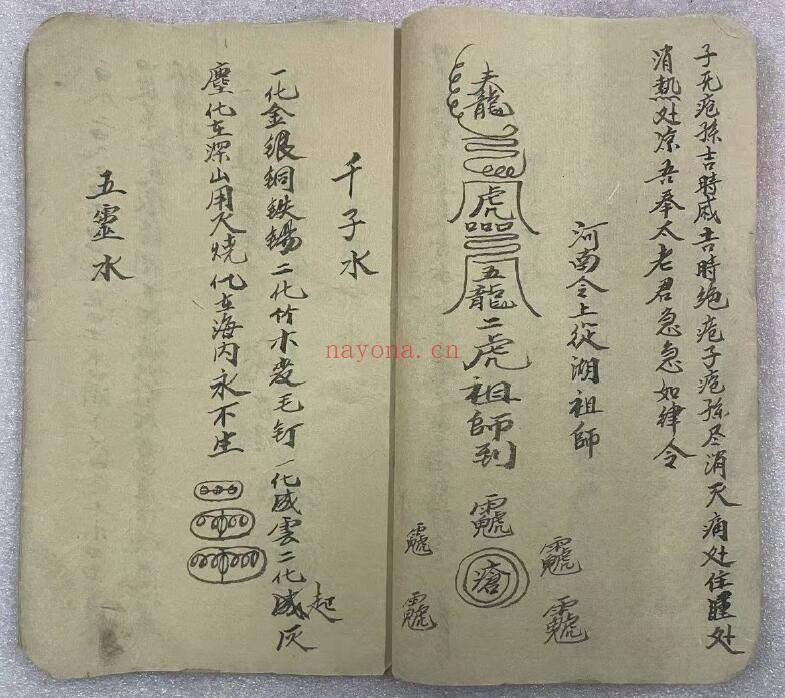 子无疤孫吉時滅吉時绝疤子疤孫尽消灭痛处住腫处
消熱处凉吾奉太老君急急如律令
河南令上從湖祖師
天龍
虎
五龍
二虎祖師到
瘡
千子水
一化金银铜铁锡二化竹木發毛钉一化成雲二化成灰
起
塵化在深山用火燒化在海内永不生
五靈水
nayona.cn